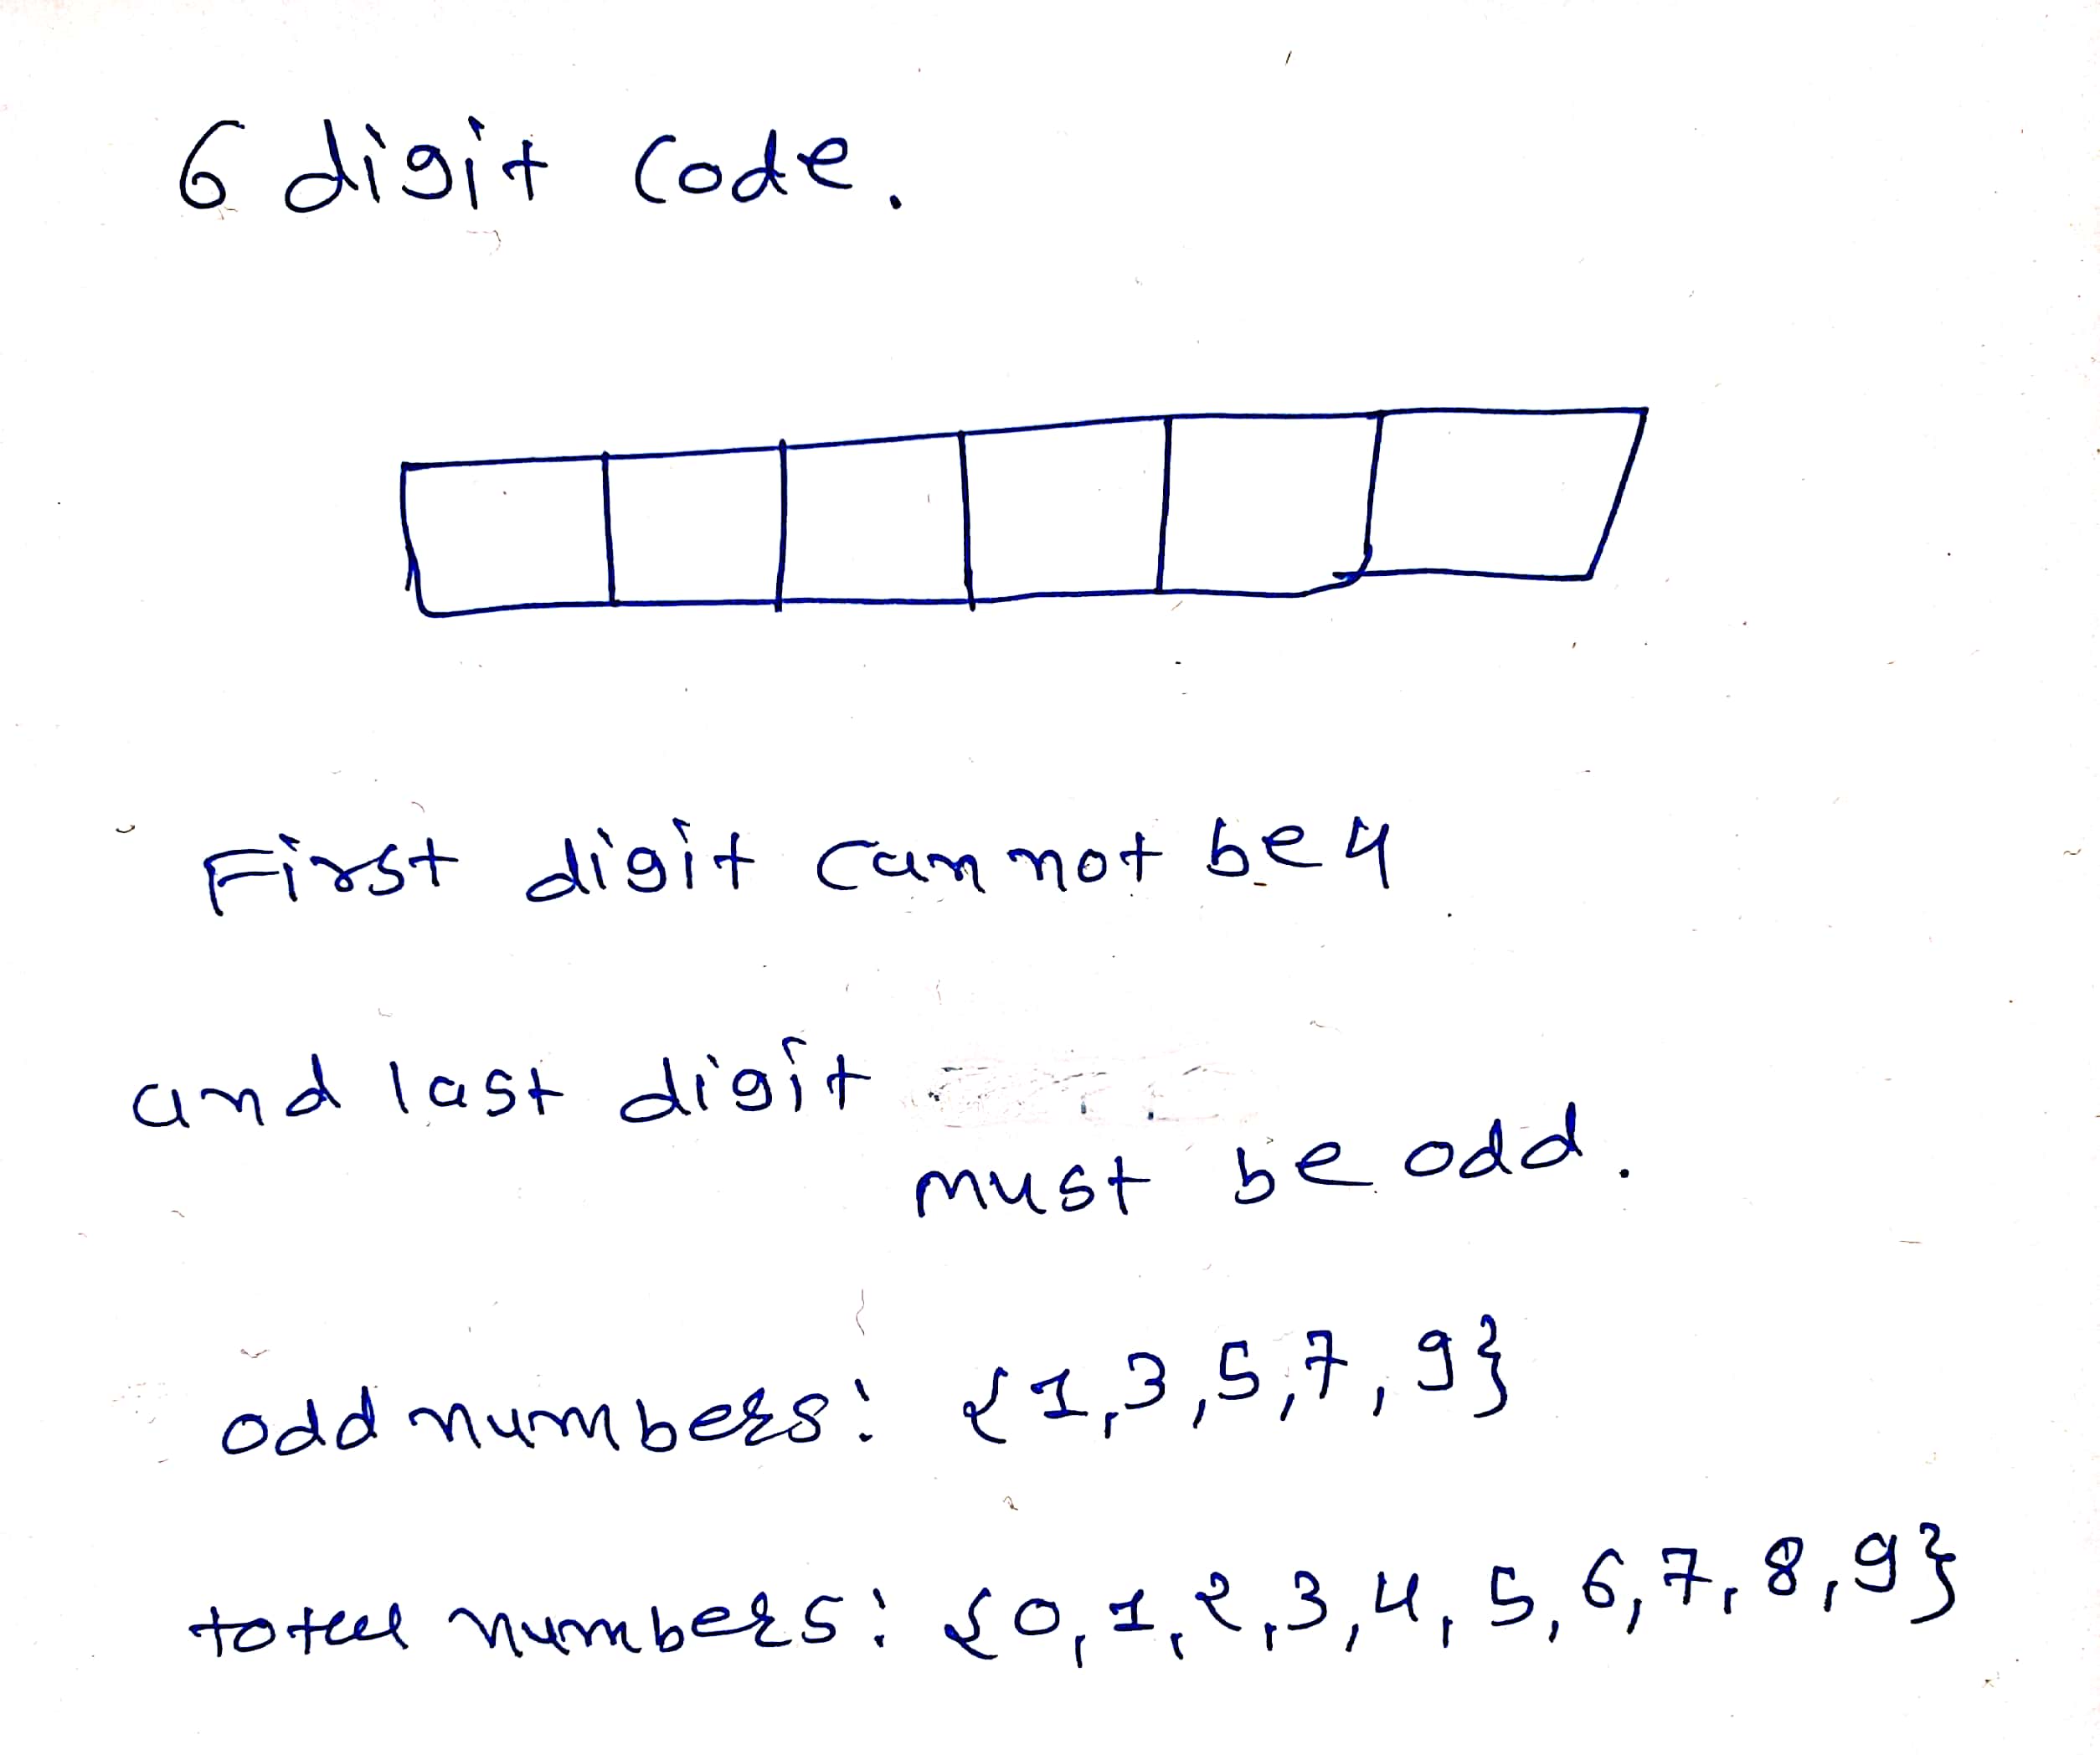 6 digit code.
First digit cannot be 4
and last digit
must be odd.
odd numbers: {1,3,5,7,9}
total numbers: {0,1,2,3,4,5,6,7,8,9}